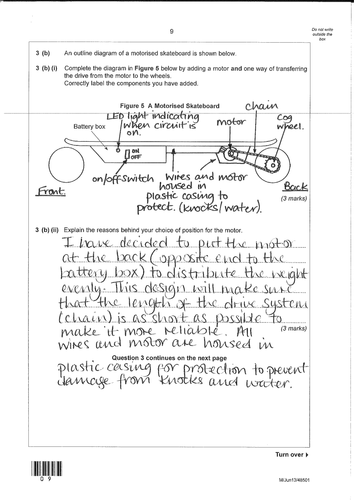 9
Do not write
outside the
box
3 (b) An outline diagram of a motorised skateboard is shown below.
3 (b) (i) Complete the diagram in Figure 5 below by adding a motor and one way of transferring
the drive from the motor to the wheels.
Correctly label the components you have added.
Figure 5 A Motorised Skateboard
chain
LED light indicating
when circuit is
on.
motor
cog
wheel.
Battery box
ON
OFF
on/off switch
wires and motor
housed in
plastic casing to
protect. (knocks/water).
Front
Back
(3 marks)
3 (b) (ii) Explain the reasons behind your choice of position for the motor.
I have decided to put the motor
at the back (opposite end to the
battery box) to distribute the weight
evenly. This design will make sure
that the length of the drive system
(chain) is as short as possible to
make it more reliable. All
(3 marks)
wires and motor are housed in
Question 3 continues on the next page
plastic casing for protection to prevent
damage from knocks and water.
Turn over
0 9
M/Jun13/48501